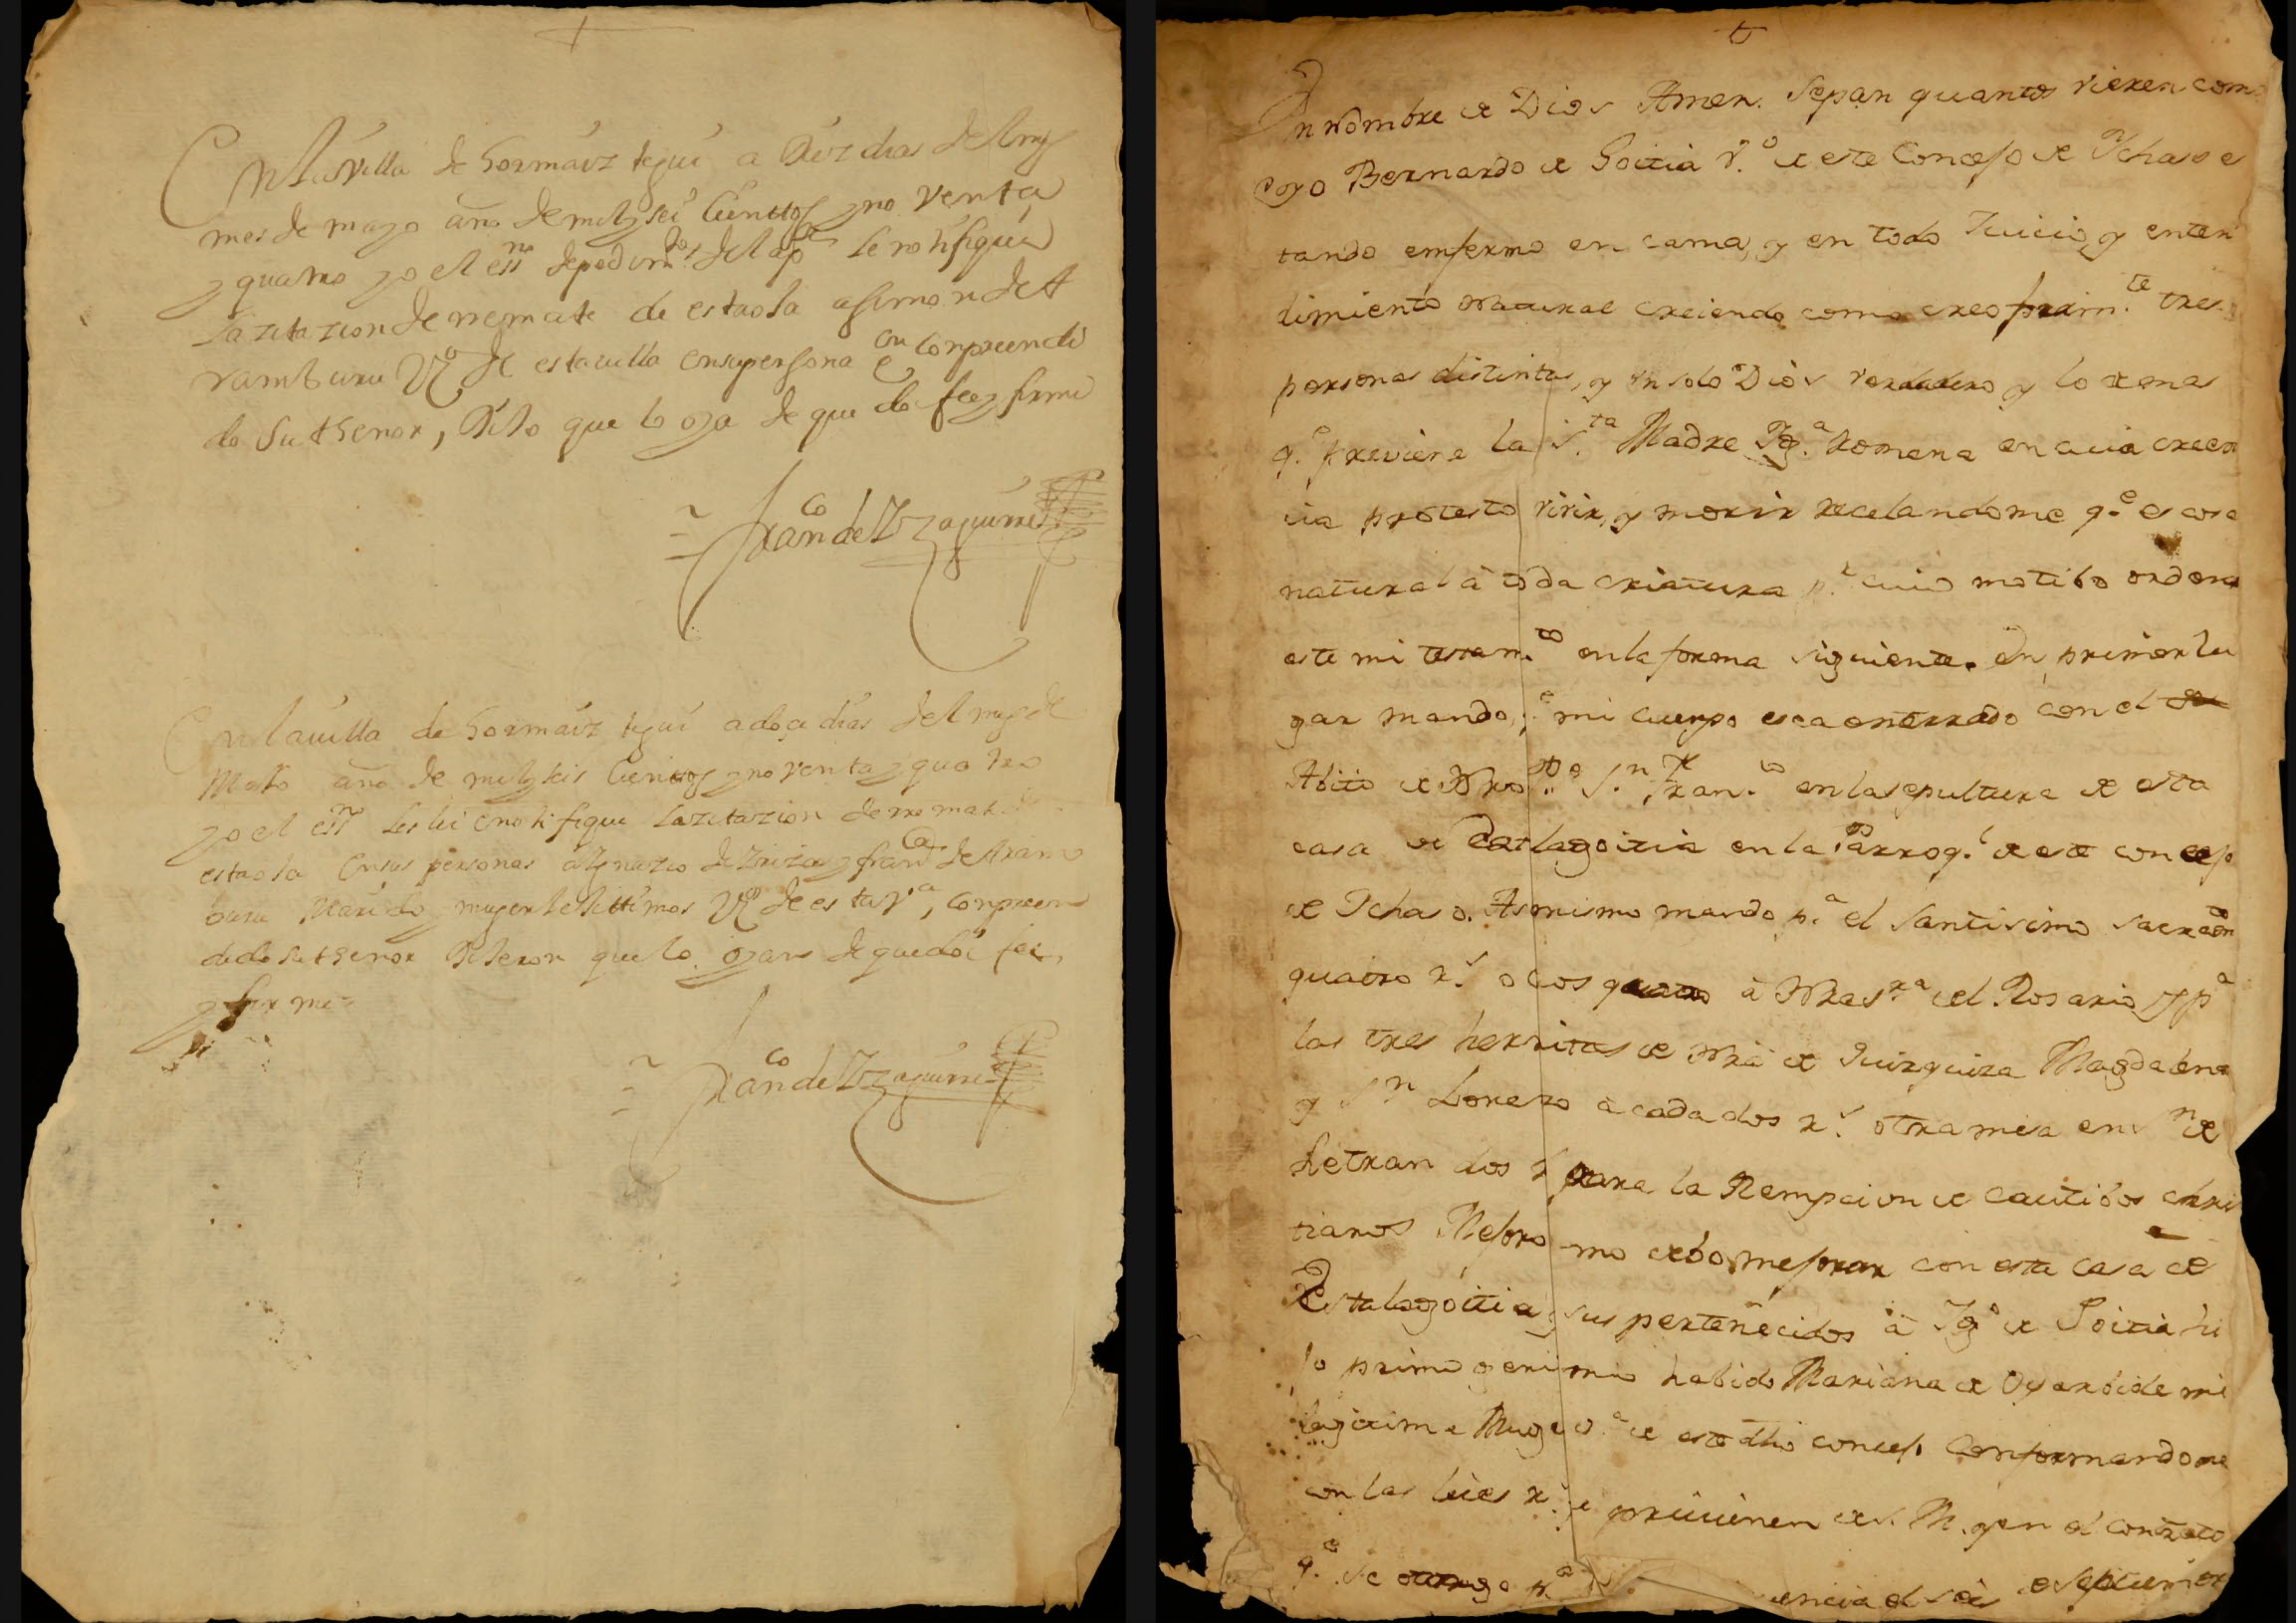 En la Villa de hormaiz tegui a Diez dias del
mes de mayo año de mil y seis cienttos y no venta
y quatro yo el essno de pedimto del appte le notifique
la zitazion de rremate de esta ofa a simon de A
ramburu Vo de esta villa en su persona e con conpreendi
do Su thenor, Dijo que lo oya de que doi fee y firme
Franco de Yzaguirre
En la uilla de hormaiz tegui a doçe dias del mes de
Mayo año de mil y seis Cienttos y no venta y quatro
yo el essno les lei e notifique la zitazion de rremate
esta ofa En sus personas a Ygnazio de Yriza y franca de Aram
buru Marido y muger lexittimos Vos de esta va, Conpreen
dido Su thenor Dijeron que lo oyan de que doi fee,
y firme
Franco de Yzaguirre
En Nombre de Dios Amen. Sepan quantos vieren como
Yo Bernardo de Goitia vo de este Concejo de Ychaso es
tando enfermo en cama, y en todo Juicio, y enten
dimiento natural creiendo como creo firmte tres
personas distintas, y un solo Dios verdadero y lo demas
qe previene la Sta Madre Yga Romana en cuia creen
cia protesto vivir, y morir recelandome qe es cosa
natural á toda criatura pr cuio motibo ordeno
este mi testamto en la forma siguiente. En primer lu
gar mando, qe mi cuerpo sea enterrado con el
Abito de Nro Pe Sn Franco en la sepultura de esta
casa de Eztalagoitia en la Parroql de este concejo
de Ychaso. Asimismo mando pa el Santisimo Sacram
quatro rs otros quatro á Nra Sra del Rosario, y pa
las tres hermitas de Nra de Quizquiza Magdalena
y Sn Lorenzo á cada dos rs otra mia en Sn de
Letran dos rs para la Rempcion de Cautibos chris
tianos Mejoro mo debo mejorar con esta casa de
Estalagoitia y sus pertenecidos á Ygo de Goitia hi
jo primogenito mio habido Mariana de Oyarbide mi
legitima Muger va de este dho concejo Conformandome
con las leies rs qe previenen de S. M. y en el contrato
qe se otorgo pa encia el seis de Septiembre